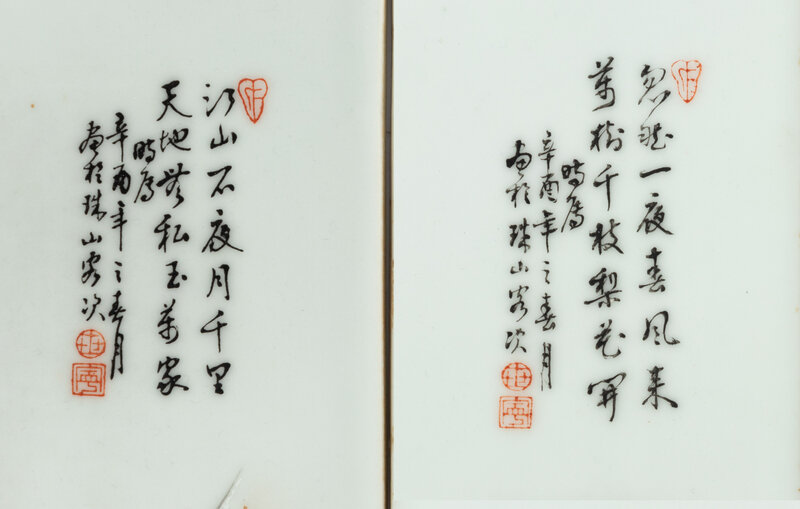 忽然一夜春風来
萬樹千枝梨花開
時屬
辛酉年之春月
畫於珠山客次
江山不夜月千里
天地無私玉萬家
時屬
辛酉年之春月
畫於珠山客次